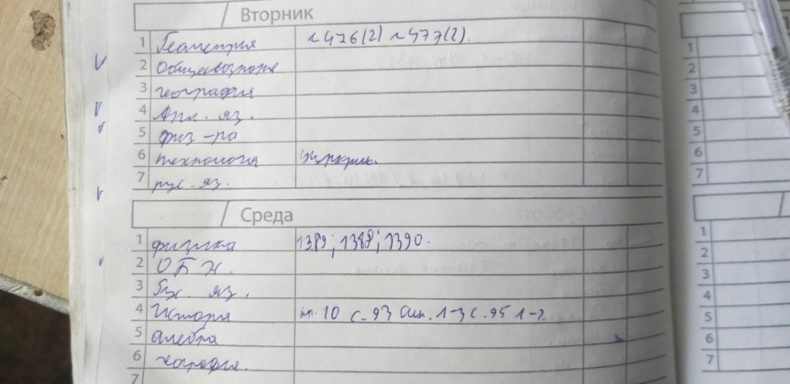 Вторник
1 Геометрия № 476(2) № 477(2).
2 Обществозн
3 география
4 Англ. яз.
5 физ-ра
6 технология циркуль.
7 рус. яз.
Среда
1 физика 1389; 1388; 1390.
2 ОБЖ.
3 яз.
4 История п. 10 с. 93 1-3 с. 95 1-2
5 алгебра
6 география.
7
1
2
3
4
5
6
7
1
2
3
4
5
6
7